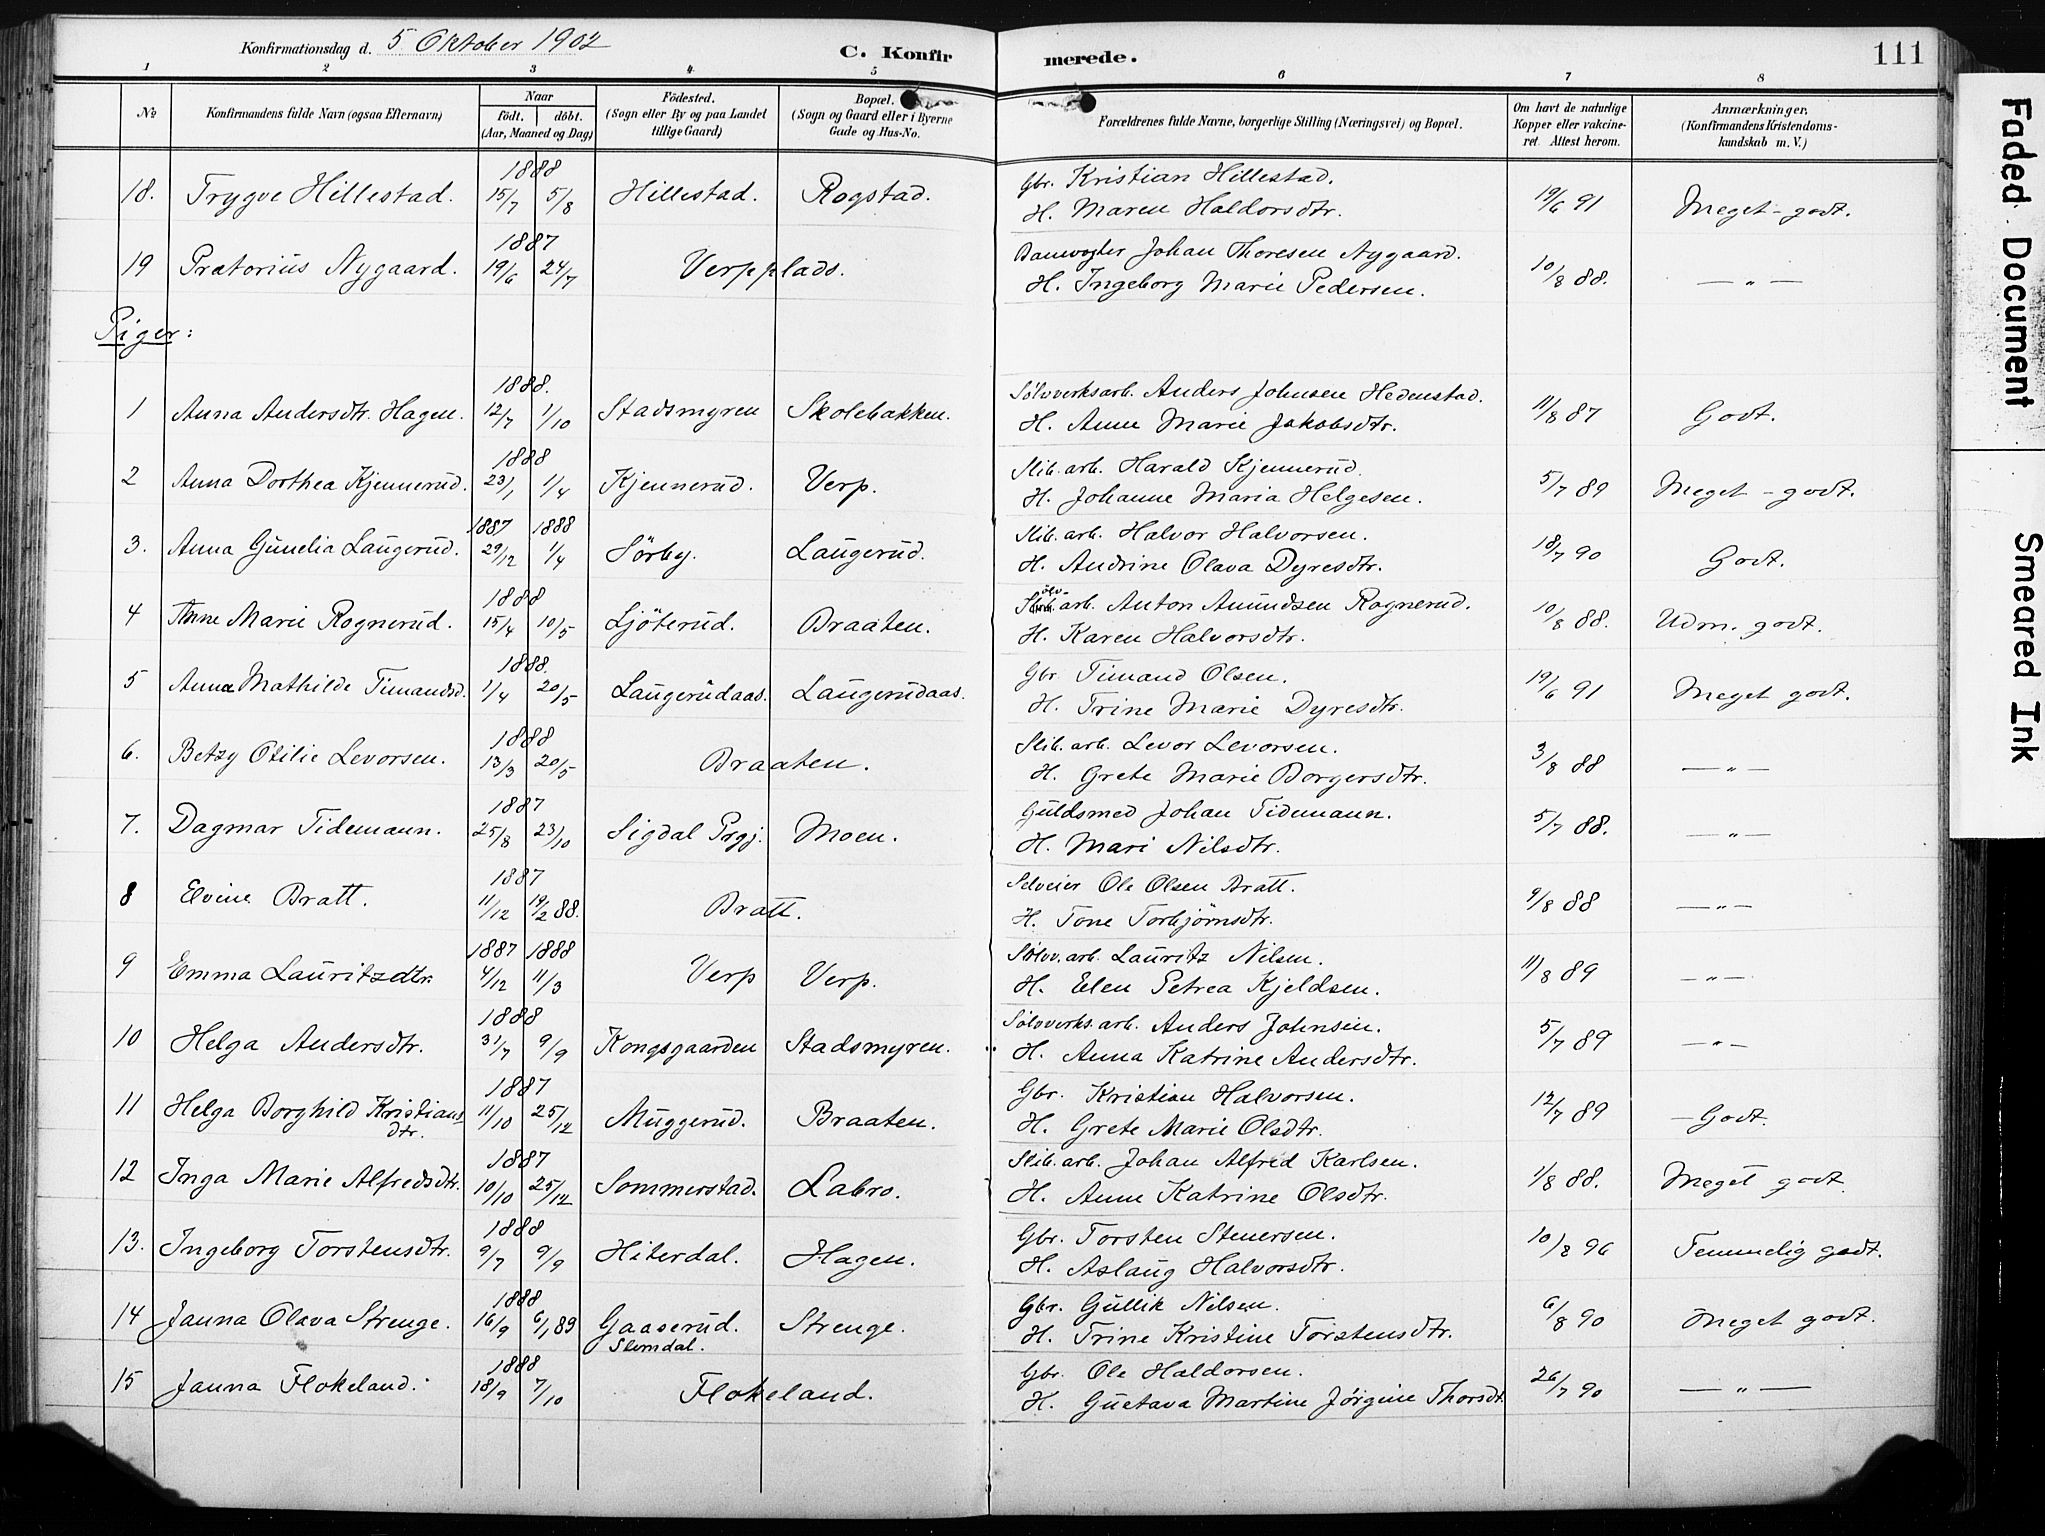 Konfirmationsdag d. 5 Oktober 1902 C. Konfirmerede. 111
1 2 3 4 5 6 7 8
No Konfirmandens fulde Navn (ogsaa Efternavn) Naar født. døbt. (Aar, Maaned og Dag) Födested. (Sogn eller By og paa Landet tillige Gaard) Bopæl. (Sogn og Gaard eller i Byerne Gade og Hus-No. Forældrenes fulde Navne, borgerlige Stilling (Næringsvei) og Bopæl. Om havt de naturlige Kopper eller vakcineret. Attest herom. Anmærkninger. (Konfirmandens Kristendomskundskab m. V.)
18. Trygve Hillestad. 1888 15/7 5/8 Hillestad. Rogstad. Gbr. Kristian Hillestad. 19/6 91 Meget-godt.
H. Maren Haldorsdtr.
19 Prætorius Nygaard. 1887 19/6 24/7 Verpplads. Banevogter Johan Thoresen Nygaard. 10/8 88. — „ —
H. Ingeborg Marie Pedersen.
Piger:
1 Anna Andersdtr. Hagen. 1888. 12/7 1/10 Stadsmyren Skolebakken. Sølvverksarb. Anders Johnsen Hedenstad. 11/8 87 Godt.
H. Anne Marie Jakobsdtr.
2 Anna Dorthea Kjennerud. 1888 23/1 1/4 Kjennerud. Verp. Slib.arb. Harald Kjennerud. 5/7 89 Meget-godt.
H. Johanne Maria Helgesen.
3. Anna Gunelia Laugerud. 1887 29/12 1888 1/4 Sörby. Laugerud. Slib.arb. Halvor Halvorsen. 18/7 90 Godt.
H. Andrine Olava Dyresdtr.
4 Anne Marie Rognerud. 1888 15/4 10/5 Ljöterud. Braaten. Sølv. arb. Anton Amundsen Rognerud. 10/8 88. Udm. godt.
H. Karen Halvorsdtr.
5 Anna Mathilde Timandsd. 1888. 1/4 20/5 Laugerudaas. Laugerudaas. Gbr Timand Olsen. 19/6 91 Meget godt.
H. Trine Marie Dyresdtr.
6. Betzy Otilie Levorsen. 1888 13/3 20/5 Braaten. Slib.arb. Levor Levorsen. 3/8 88 — „ —
H. Grete Marie Borgersdtr.
7. Dagmar Tidemann. 1887 25/8 23/10 Sigdal Prgj. Moen. Guldsmed Johan Tidemann. 5/7 88. — „ —
H. Mari Nilsdtr.
8 Elvine Bratt. 1887 11/12 19/2 88. Bratt. Selveier Ole Olsen Bratt. 9/8 88 — „ —
H. Tone Torbjörnsdtr.
9 Emma Lauritzdtr. 1887 4/12 1888 11/3 Verp Verp. Sølvv.arb. Lauritz Nilsen. 11/8 89 — „ —
H. Elen Petrea Kjeldsen.
10 Helga Andersdtr. 1888 31/7 9/9 Kongsgaarden Stadsmyren. Sølvverks.arb. Anders Johnsen. 5/7 89 — „ —
H. Anna Katrine Andersdtr.
11 Helga Borghild Kristiansdtr. 1887 11/10 25/12 Muggerud. Braaten. Gbr. Kristian Halvorsen. 12/7 89 Godt.
H. Grete Marie Olsdtr.
12 Inga Marie Alfredsdtr. 1887 10/10 25/12 Sommerstad. Labro. Slib.arb. Johan Alfred Karlsen. 1/8 88. Meget godt
H. Anne Katrine Olsdtr.
13. Ingeborg Torstensdtr. 1888 9/7 9/9 Hiterdal. Hagen. Gbr. Torsten Stenersen. 10/8 96 Temmelig godt.
H. Aslaug Halvorsdtr.
14 Janna Olava Strenge. 1888 16/9 6/1 89 Gaaserud. Slemdal. Strenge. Gbr. Gullik Nilsen. 6/8 90 Meget godt.
H. Trine Kristine Torstensdtr.
15 Janna Flokeland. 1888 18/9 7/10 Flokeland. Gbr. Ole Haldorsen. 26/7 90 — „ —
H. Gustava Martine Jörgine Thorsdt.
Faded Document
Smeared Ink